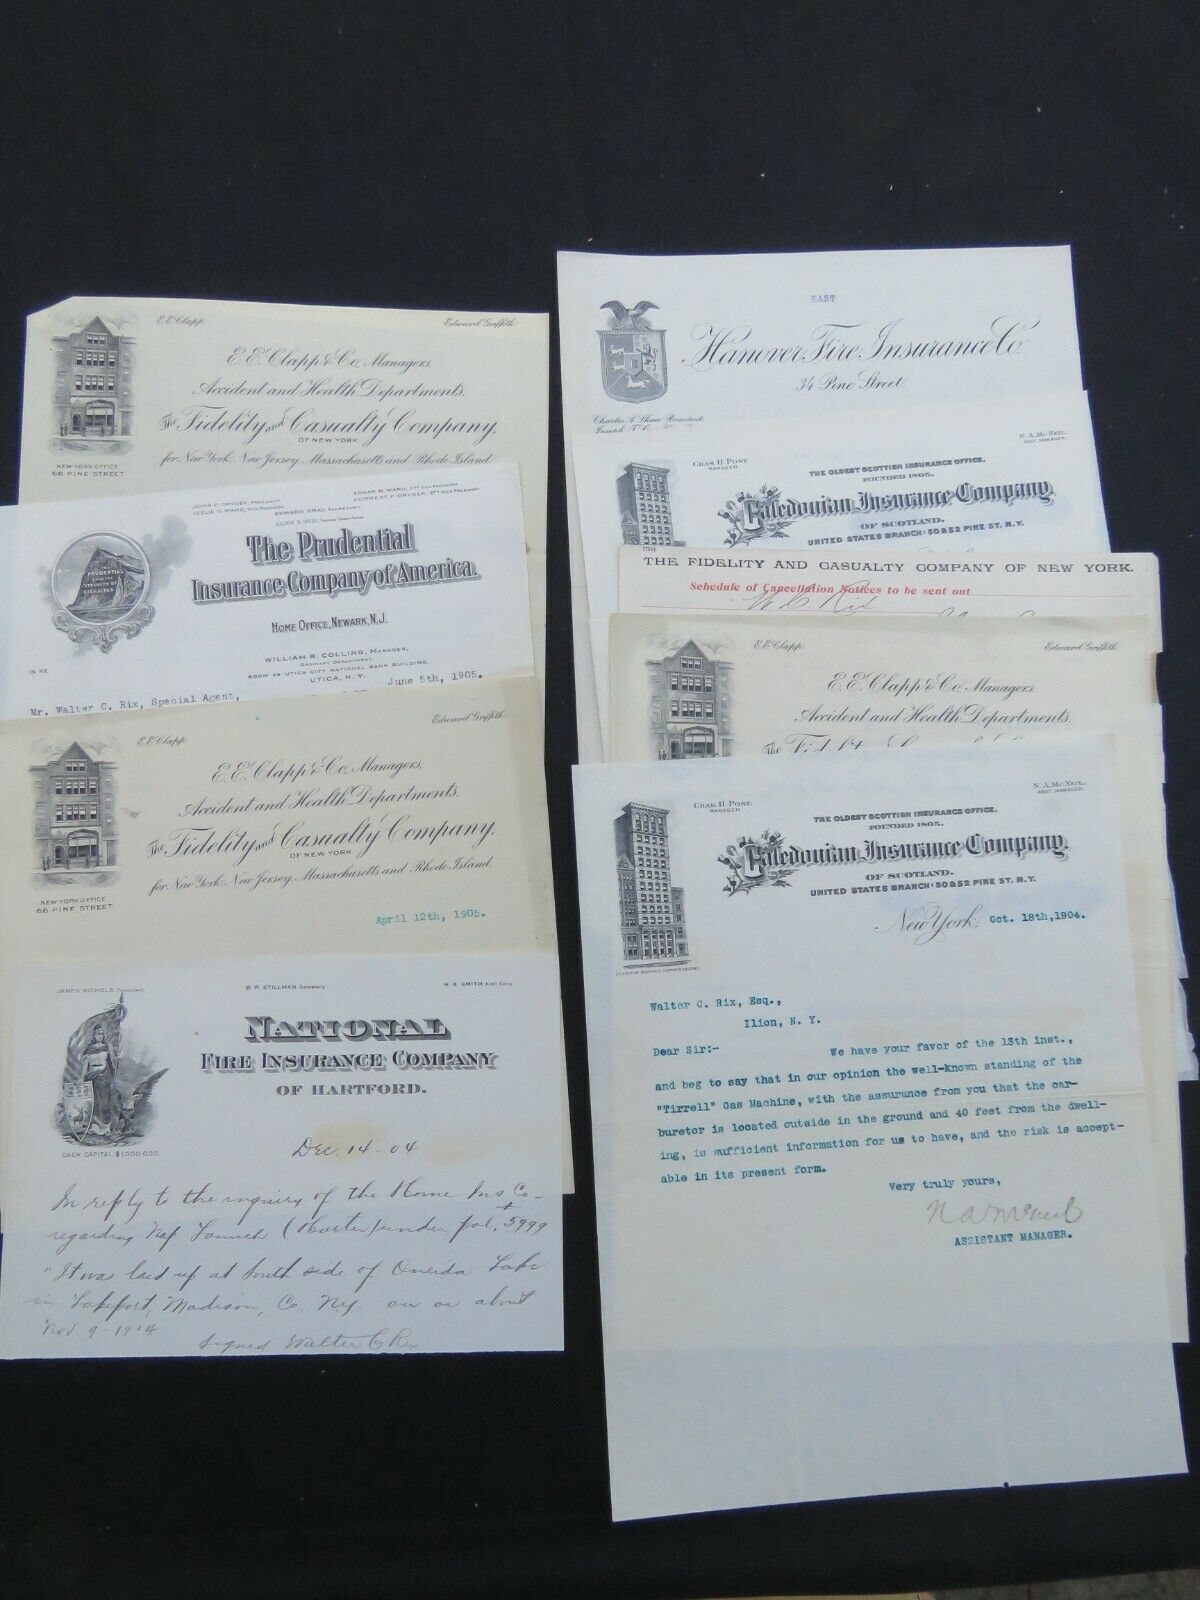 E.E. Clapp.
Edward Griffith.
E.E. Clapp & Co. Managers.
Accident and Health Departments.
The Fidelity and Casualty Company,
OF NEW YORK.
for New York, New Jersey, Massachusetts and Rhode Island.
NEW YORK OFFICE
66 PINE STREET
JOHN F. DRYDEN, PRESIDENT
LESLIE D. WARD, VICE PRESIDENT
EDGAR B. WARD, 2ND VICE PRESIDENT
FORREST F. DRYDEN, 3RD VICE PRESIDENT
EDWARD GRAY, SECRETARY
The Prudential
Insurance Company of America.
THE PRUDENTIAL HAS THE STRENGTH OF GIBRALTAR
HOME OFFICE, NEWARK, N.J.
WILLIAM B. COLLING, MANAGER,
ORDINARY DEPARTMENT,
ROOM 48 UTICA CITY NATIONAL BANK BUILDING,
UTICA, N.Y.
IN RE
June 5th, 1905.
Mr. Walter C. Rix, Special Agent,
E.E. Clapp.
Edward Griffith.
E.E. Clapp & Co. Managers.
Accident and Health Departments.
The Fidelity and Casualty Company,
OF NEW YORK.
for New York, New Jersey, Massachusetts and Rhode Island.
NEW YORK OFFICE
66 PINE STREET
April 12th, 1905.
JAMES NICHOLS, President.
B. R. STILLMAN, Secretary
H. A. SMITH, Asst. Secy.
NATIONAL
FIRE INSURANCE COMPANY
OF HARTFORD.
CASH CAPITAL $1,000,000.
Dec. 14-04
In reply to the inquiry of the Home Ins Co-
regarding Nap Launch (Harter) under pol. 5999
"It was laid up at South side of Oneida Lake
in Lakeport, Madison, Co. Ny. on or about
Nov. 9-1904
Signed Walter C Rix
EAST
Hanover Fire Insurance Co.
34 Pine Street
Charles A. Shaw, President
Joseph
N. A. MC NEIL.
ASST. MANAGER.
CHAS. H. POST.
MANAGER.
THE OLDEST SCOTTISH INSURANCE OFFICE,
FOUNDED 1805.
Caledonian Insurance Company.
OF SCOTLAND.
UNITED STATES BRANCH: 50 & 52 PINE ST. N.Y.
THE FIDELITY AND CASUALTY COMPANY OF NEW YORK.
Schedule of Cancellation Notices to be sent out
W C Rix
E.E. Clapp.
Edward Griffith.
E.E. Clapp & Co. Managers.
Accident and Health Departments.
The
CHAS. H. POST.
MANAGER.
N. A. MC NEIL.
ASST. MANAGER.
THE OLDEST SCOTTISH INSURANCE OFFICE,
FOUNDED 1805.
Caledonian Insurance Company.
OF SCOTLAND.
UNITED STATES BRANCH: 50 & 52 PINE ST. N.Y.
New York, Oct. 18th, 1904.
Walter C. Rix, Esq.,
Ilion, N. Y.
Dear Sir:- We have your favor of the 13th inst.,
and beg to say that in our opinion the well-known standing of the
"Tirrell" Gas Machine, with the assurance from you that the car-
buretor is located outside in the ground and 40 feet from the dwell-
ing, is sufficient information for us to have, and the risk is accept-
able in its present form.
Very truly yours,
N A McNeil
ASSISTANT MANAGER.